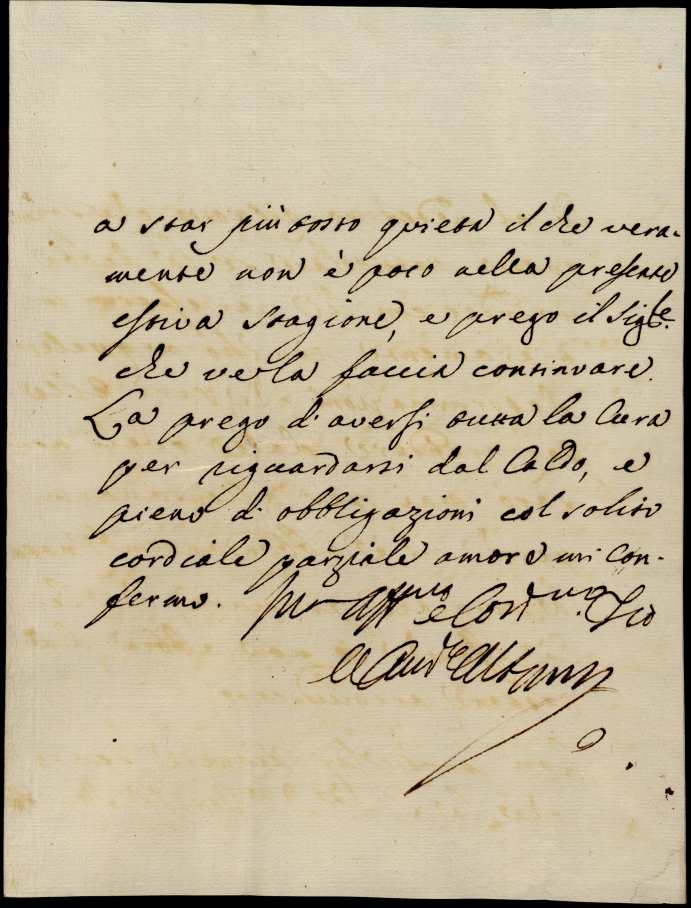 a star più tosto quieta il che vera-
mente non è poco nella presente
estiva stagione, e prego il Sig.re
che ve la faccia continuare.
La prego di aversi tutta la Cura
per riguardarsi dal Caldo, e
pieno di obbligazioni col solito
cordiale parziale amore mi con-
fermo. Aff.mo e Cord.mo Zio